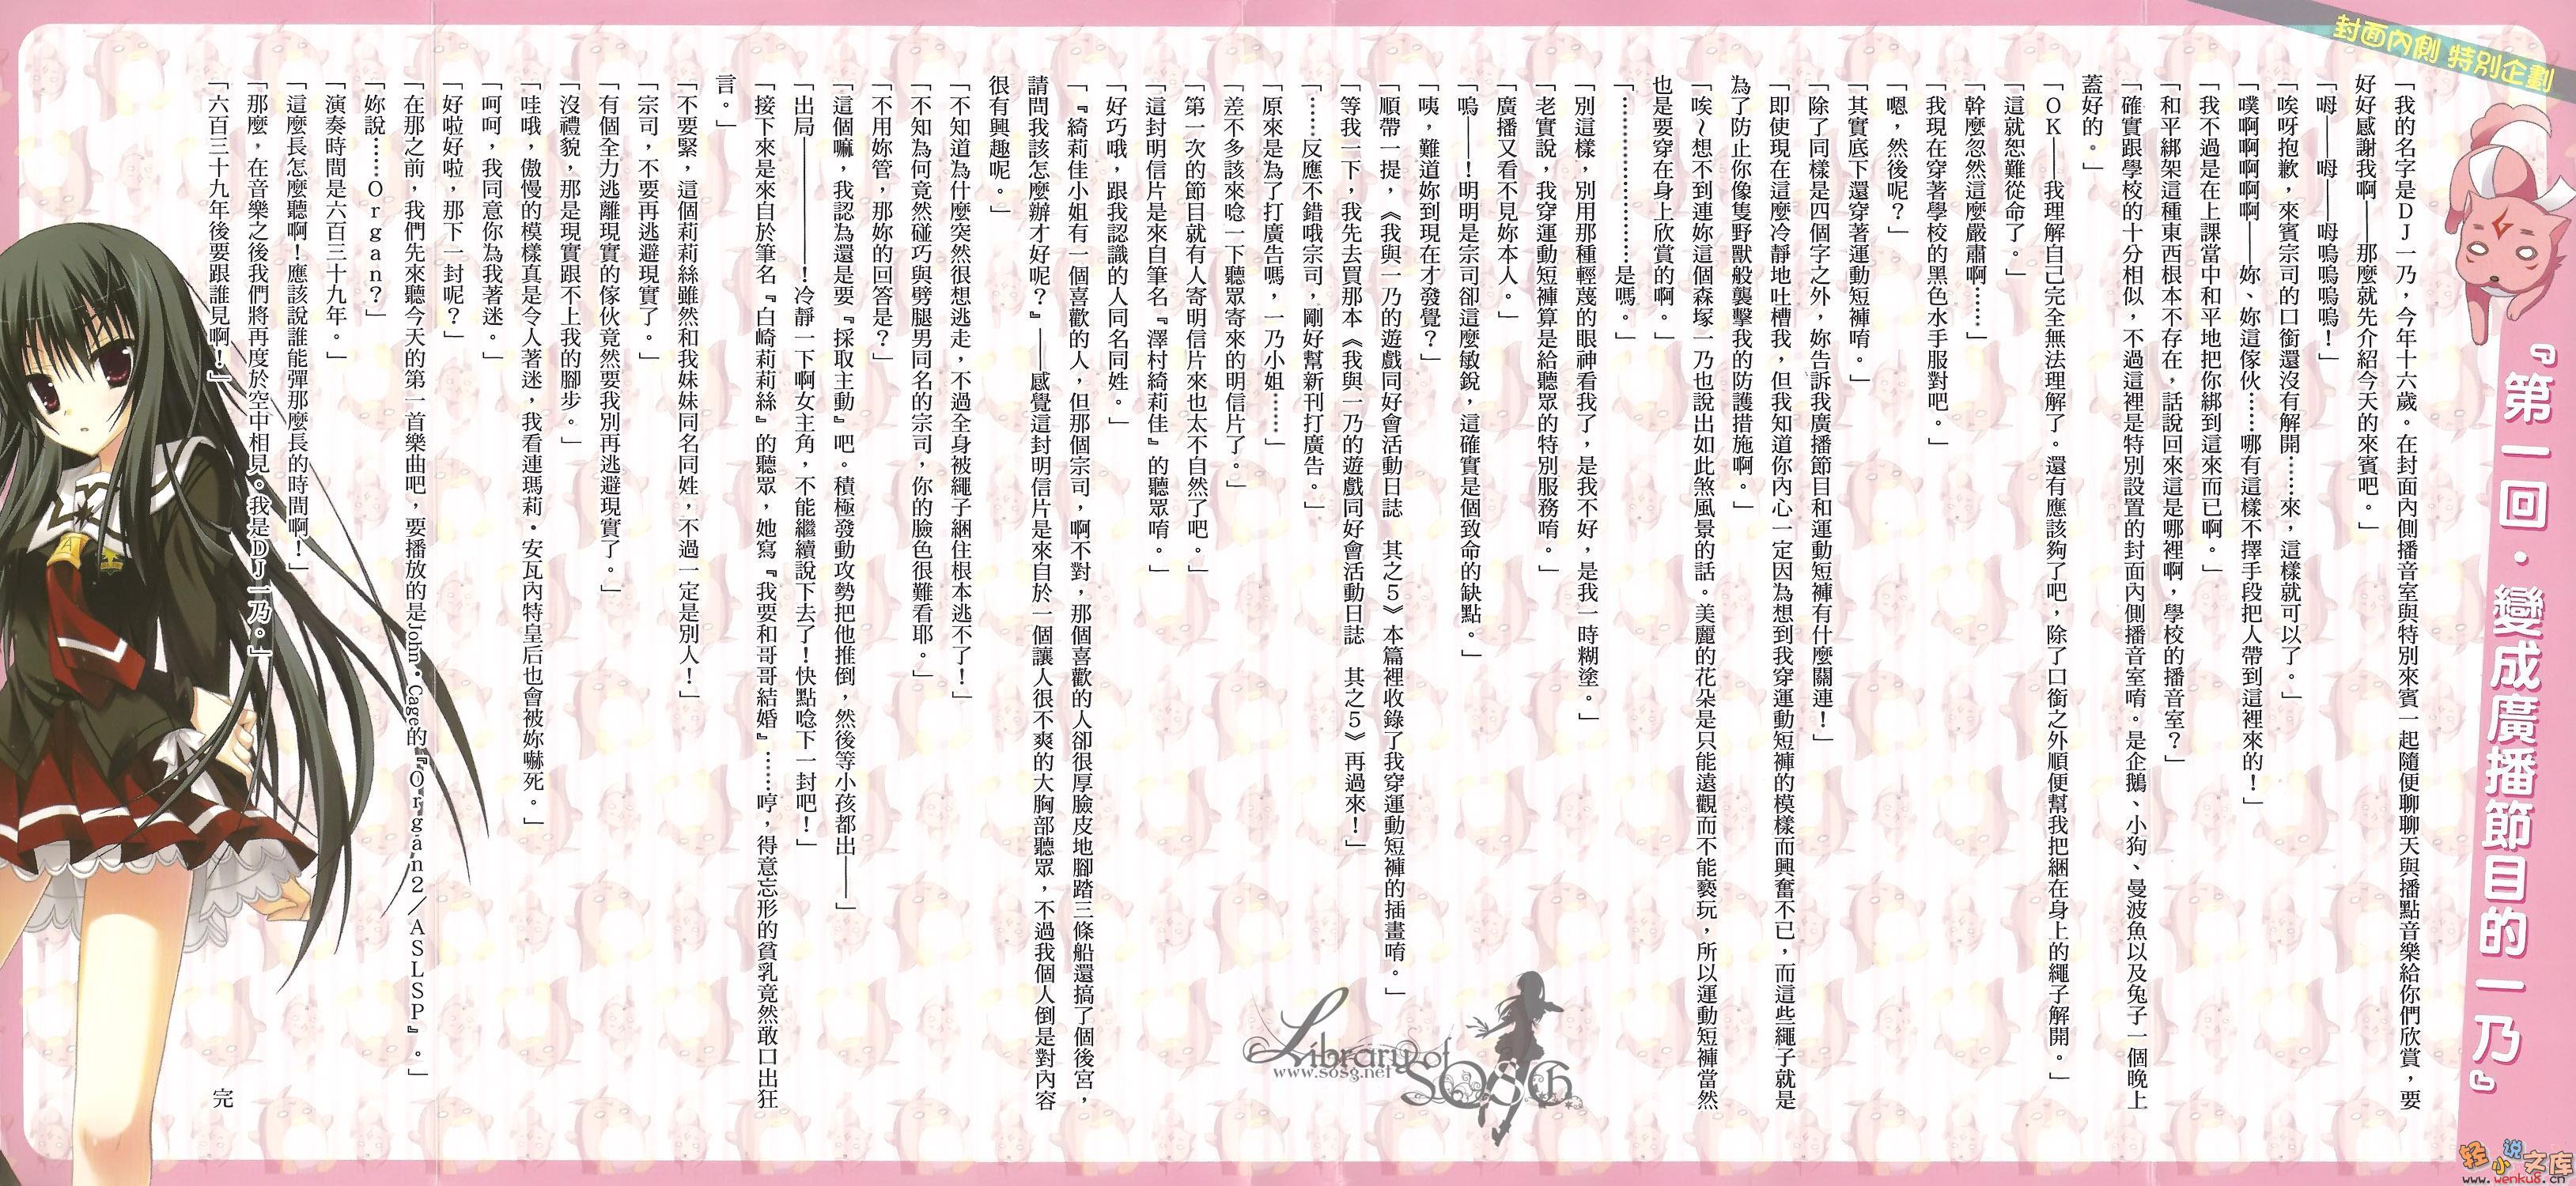 封面內側 特別企劃
『第一回・變成廣播節目的一乃』
「我的名字是DJ一乃，今年十六歲。在封面內側播音室與特別來賓一起隨便聊聊天與播點音樂給你們欣賞，要
好好感謝我啊——那麼就先介紹今天的來賓吧。」
「呣——呣——呣嗚嗚嗚嗚！」
「唉呀抱歉，來賓宗司的口銜還沒有解開……來，這樣就可以了。」
「噗啊啊啊啊啊——妳、妳這傢伙……哪有這樣不擇手段把人帶到這裡來的！」
「我不過是在上課當中和平地把你綁到這來而已啊。」
「和平綁架這種東西根本不存在，話說回來這是哪裡啊，學校的播音室？」
「確實跟學校的十分相似，不過這裡是特別設置的封面內側播音室唷。是企鵝、小狗、曼波魚以及兔子一個晚上
蓋好的。」
「OK——我理解自己完全無法理解了。還有應該夠了吧，除了口銜之外順便幫我把綑在身上的繩子解開。」
「這就恕難從命了。」
「幹麼忽然這麼嚴肅啊……」
「我現在穿著學校的黑色水手服對吧。」
「嗯，然後呢？」
「其實底下還穿著運動短褲唷。」
「除了同樣是四個字之外，妳告訴我廣播節目和運動短褲有什麼關連！」
「即使現在這麼冷靜地吐槽我，但我知道你內心一定因為想到我穿運動短褲的模樣而興奮不已，而這些繩子就是
為了防止你像隻野獸般襲擊我的防護措施啊。」
「唉～想不到連妳這個森塚一乃也說出如此煞風景的話。美麗的花朵是只能遠觀而不能褻玩，所以運動短褲當然
也是要穿在身上欣賞的啊。」
「…………………是嗎。」
「別這樣，別用那種輕蔑的眼神看我了，是我不好，是我一時糊塗。」
「老實說，我穿運動短褲算是給聽眾的特別服務唷。」
「廣播又看不見妳本人。」
「嗚——！明明是宗司卻這麼敏銳，這確實是個致命的缺點。」
「咦，難道妳到現在才發覺？」
「順帶一提，《我與一乃的遊戲同好會活動日誌　其之5》本篇裡收錄了我穿運動短褲的插畫唷。」
「等我一下，我先去買那本《我與一乃的遊戲同好會活動日誌　其之5》再過來！」
「……反應不錯哦宗司，剛好幫新刊打廣告。」
「原來是為了打廣告嗎，一乃小姐……」
「差不多該來唸一下聽眾寄來的明信片了。」
「第一次的節目就有人寄明信片來也太不自然了吧。」
「這封明信片是來自筆名『澤村綺莉佳』的聽眾唷。」
「好巧哦，跟我認識的人同名同姓。」
「『綺莉佳小姐有一個喜歡的人，但那個宗司，啊不對，那個喜歡的人卻很厚臉皮地腳踏三條船還搞了個後宮，
請問我該怎麼辦才好呢？』——感覺這封明信片是來自於一個讓人很不爽的大胸部聽眾，不過我個人倒是對內容
很有興趣呢。」
「不知道為什麼突然很想逃走，不過全身被繩子綑住根本逃不了！」
「不知為何竟然碰巧與劈腿男同名的宗司，你的臉色很難看耶。」
「不用妳管，那妳的回答是？」
「這個嘛，我認為還是要『採取主動』吧。積極發動攻勢把他推倒，然後等小孩都出——」
「出局——————！冷靜一下啊女主角，不能繼續說下去了！快點唸下一封吧！」
「接下來是來自於筆名『白崎莉莉絲』的聽眾，她寫『我要和哥哥結婚』……哼，得意忘形的貧乳竟然敢口出狂
言。」
「不要緊，這個莉莉絲雖然和我妹妹同名同姓，不過一定是別人！」
「宗司，不要再逃避現實了。」
「有個全力逃離現實的傢伙竟然要我別再逃避現實了。」
「沒禮貌，那是現實跟不上我的腳步。」
「哇哦，傲慢的模樣真是令人著迷，我看連瑪莉・安瓦內特皇后也會被妳嚇死。」
「呵呵，我同意你為我著迷。」
「好啦好啦，那下一封呢？」
「在那之前，我們先來聽今天的第一首樂曲吧，要播放的是John・Cage的『Organ2／ASLSP』。」
「妳說……Organ？」
「演奏時間是六百三十九年。」
「這麼長怎麼聽啊！應該說誰能彈那麼長的時間啊！」
「那麼，在音樂之後我們將再度於空中相見。我是DJ一乃。」
「六百三十九年後要跟誰見啊！」
完
Library of SOSG
www.sosg.net
轻小说文库
www.wenku8.cn